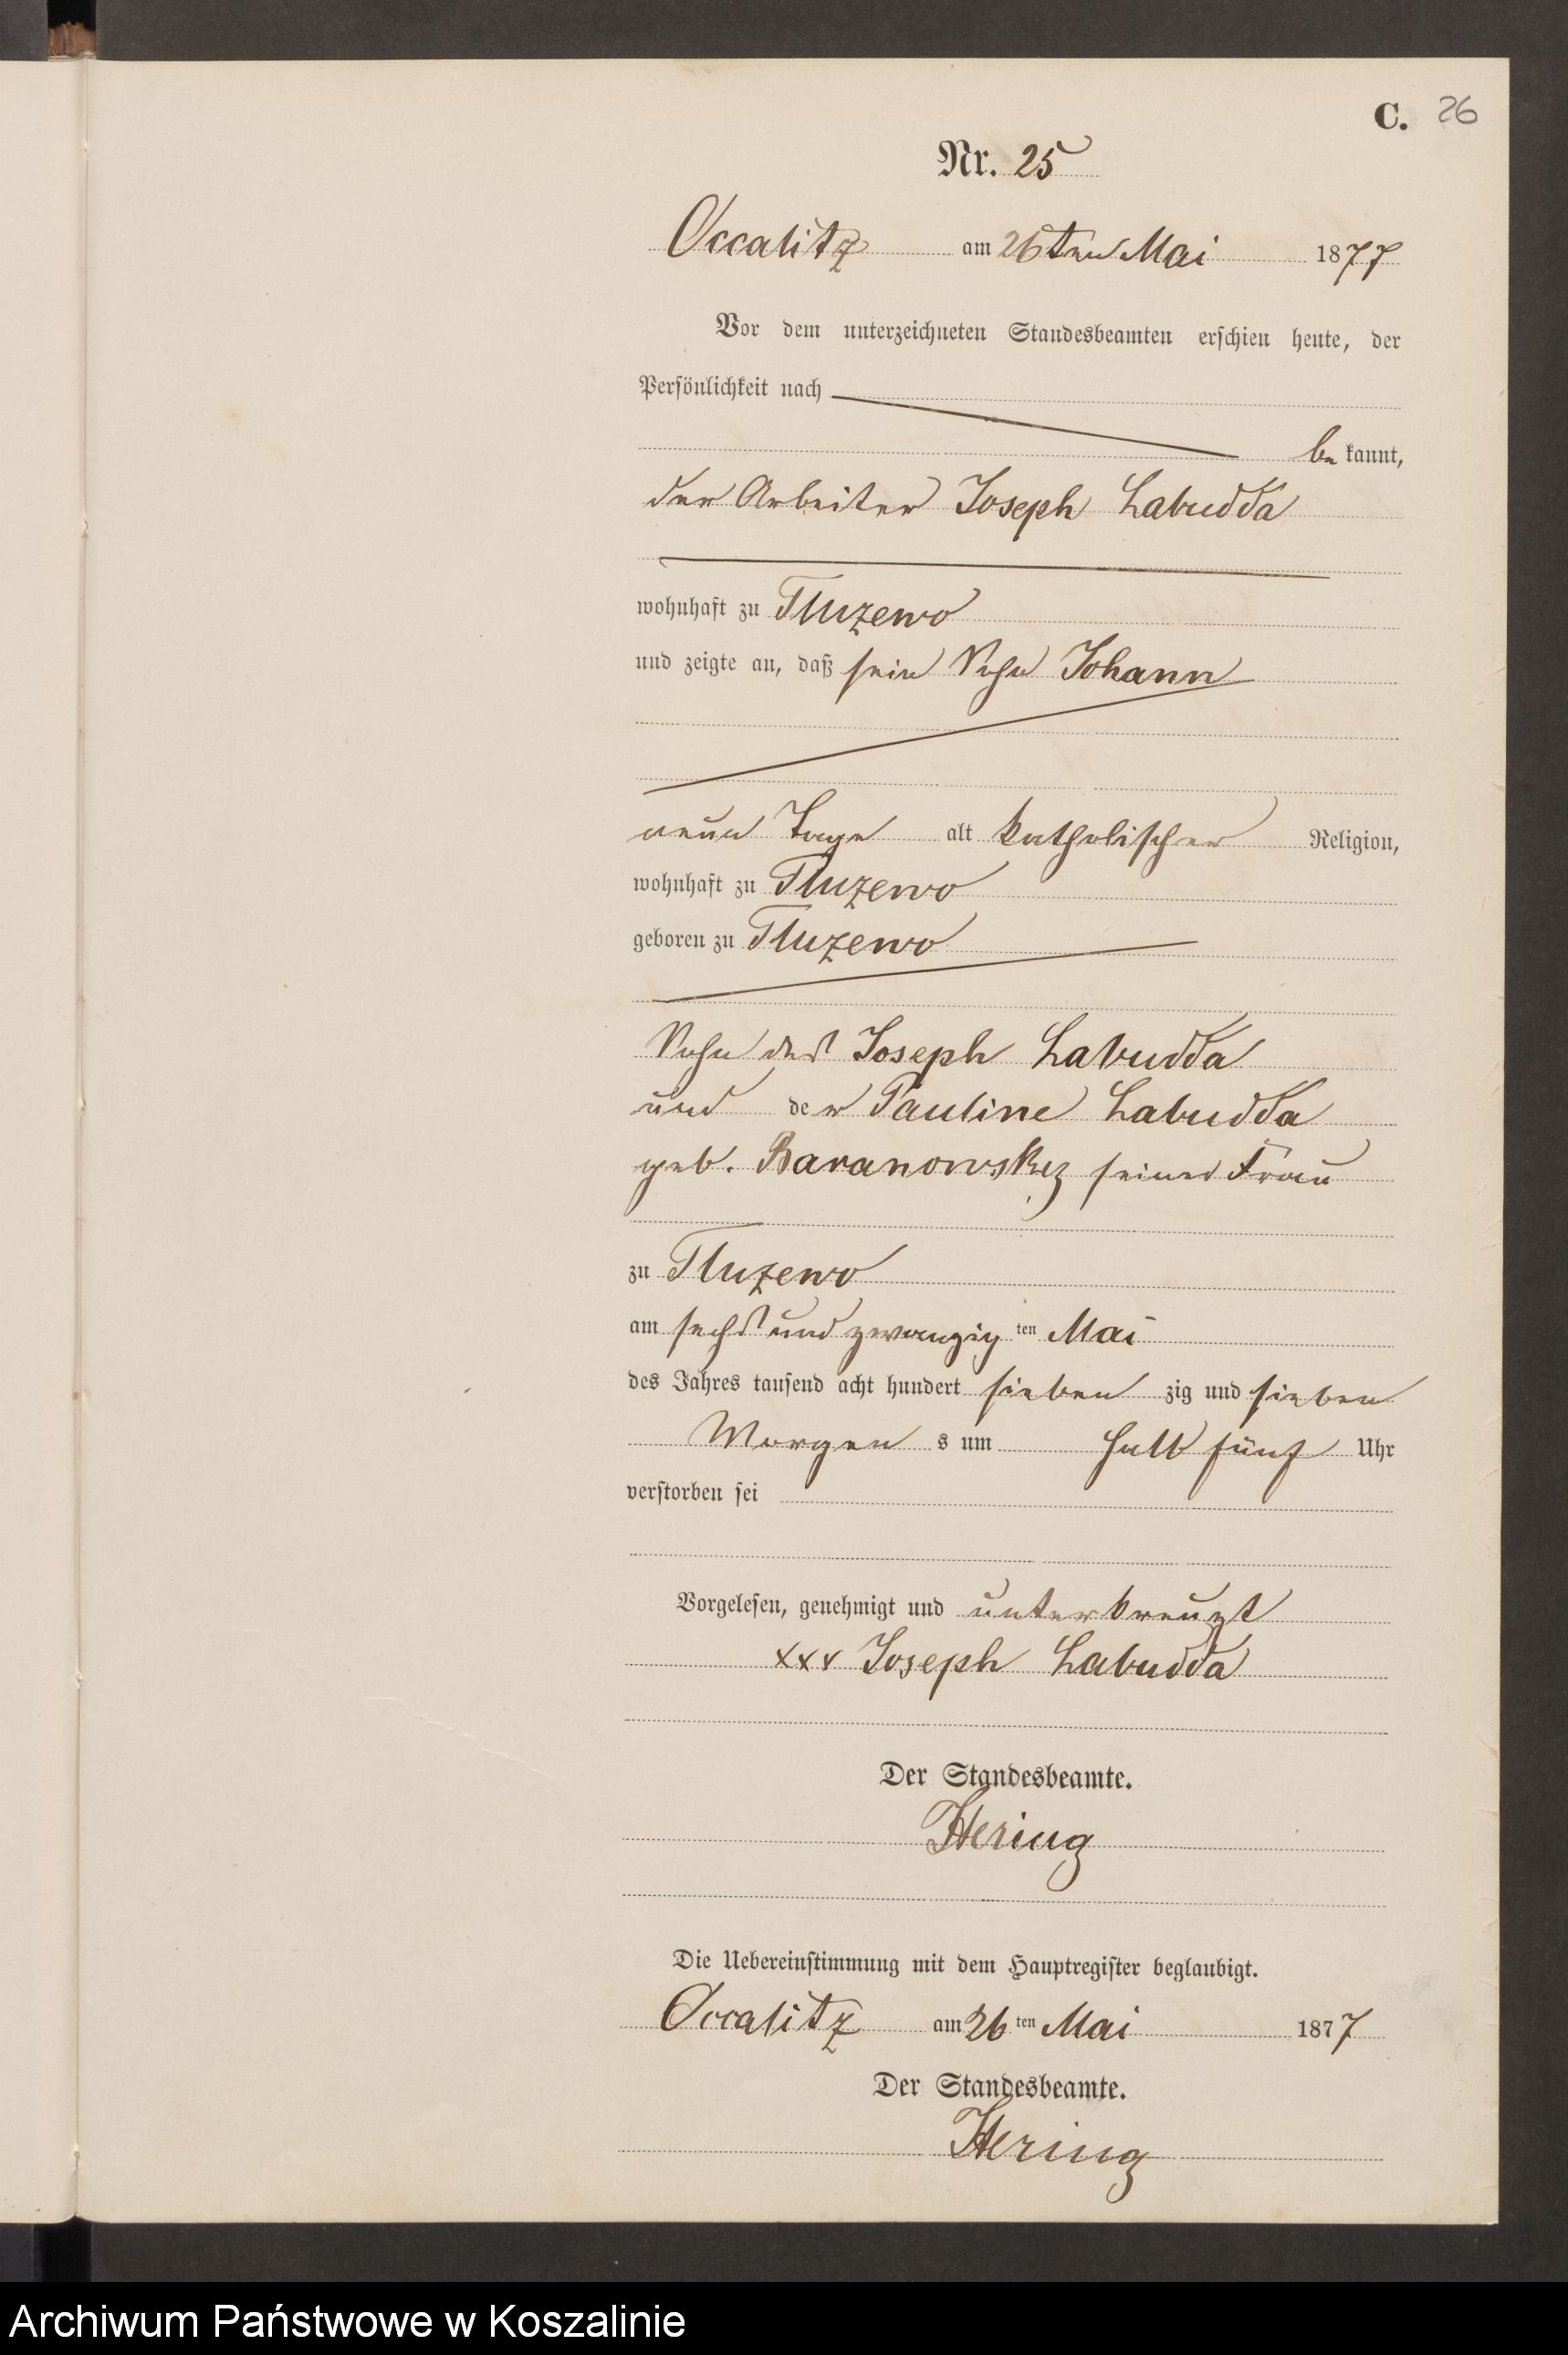 C. 26
Nr. 25
Occalitz am 26ten Mai 1877
Vor dem unterzeichneten Standesbeamten erschien heute, der
Persönlichkeit nach
be kannt,
der Arbeiter Joseph Labudda
wohnhaft zu Tluzewo
und zeigte an, daß sein Sohn Johann
neun Tage alt katholischer Religion,
wohnhaft zu Tluzewo
geboren zu Tluzewo
Sohn des Joseph Labudda
und der Pauline Labudda
geb. Baranowsky seiner Frau
zu Tluzewo
am sechs und zwanzig ten Mai
des Jahres tausend acht hundert sieben zig und sieben
Morgen s um halb fünf Uhr
verstorben sei
Vorgelesen, genehmigt und unterkreuzt
xxx Joseph Labudda
Der Standesbeamte.
Hering
Die Uebereinstimmung mit dem Hauptregister beglaubigt.
Occalitz am 26 ten Mai 1877
Der Standesbeamte.
Hering
Archiwum Państwowe w Koszalinie